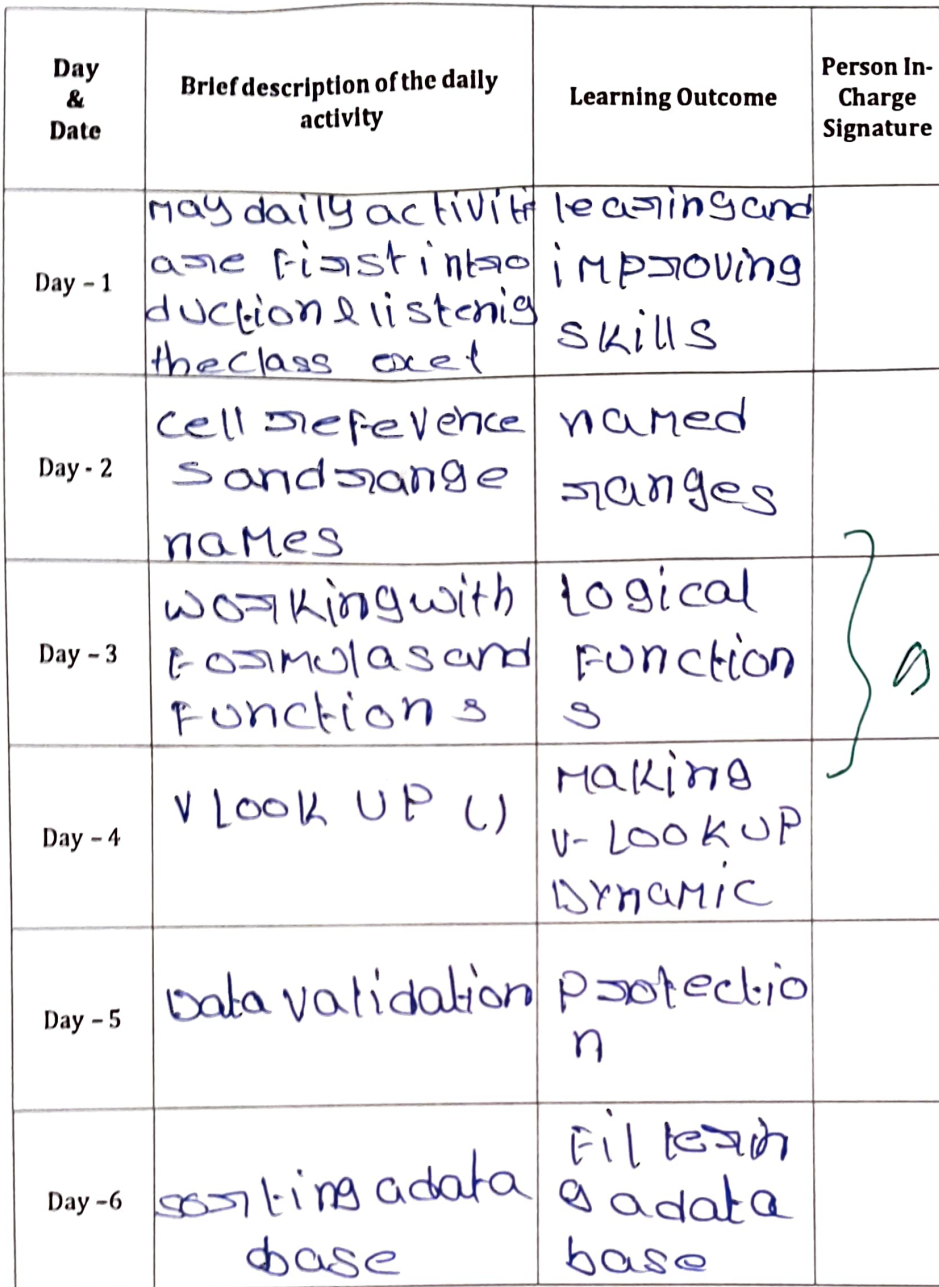 Day
&
Date
Brief description of the daily
activity
Learning Outcome
Person In-
Charge
Signature
Day – 1
May daily activiti
are First intro
duction & listenig
the class excel
learingand
improving
skills
Day - 2
cell reference
s and range
names
named
ranges
Day – 3
working with
Formulas and
Functions
Logical
Function
s
Day – 4
V LOOK UP ()
Making
V- LOOK UP
Dynamic
Day – 5
Data validation
Protectio
n
Day –6
sorting a data
base
Filterin
g a data
base